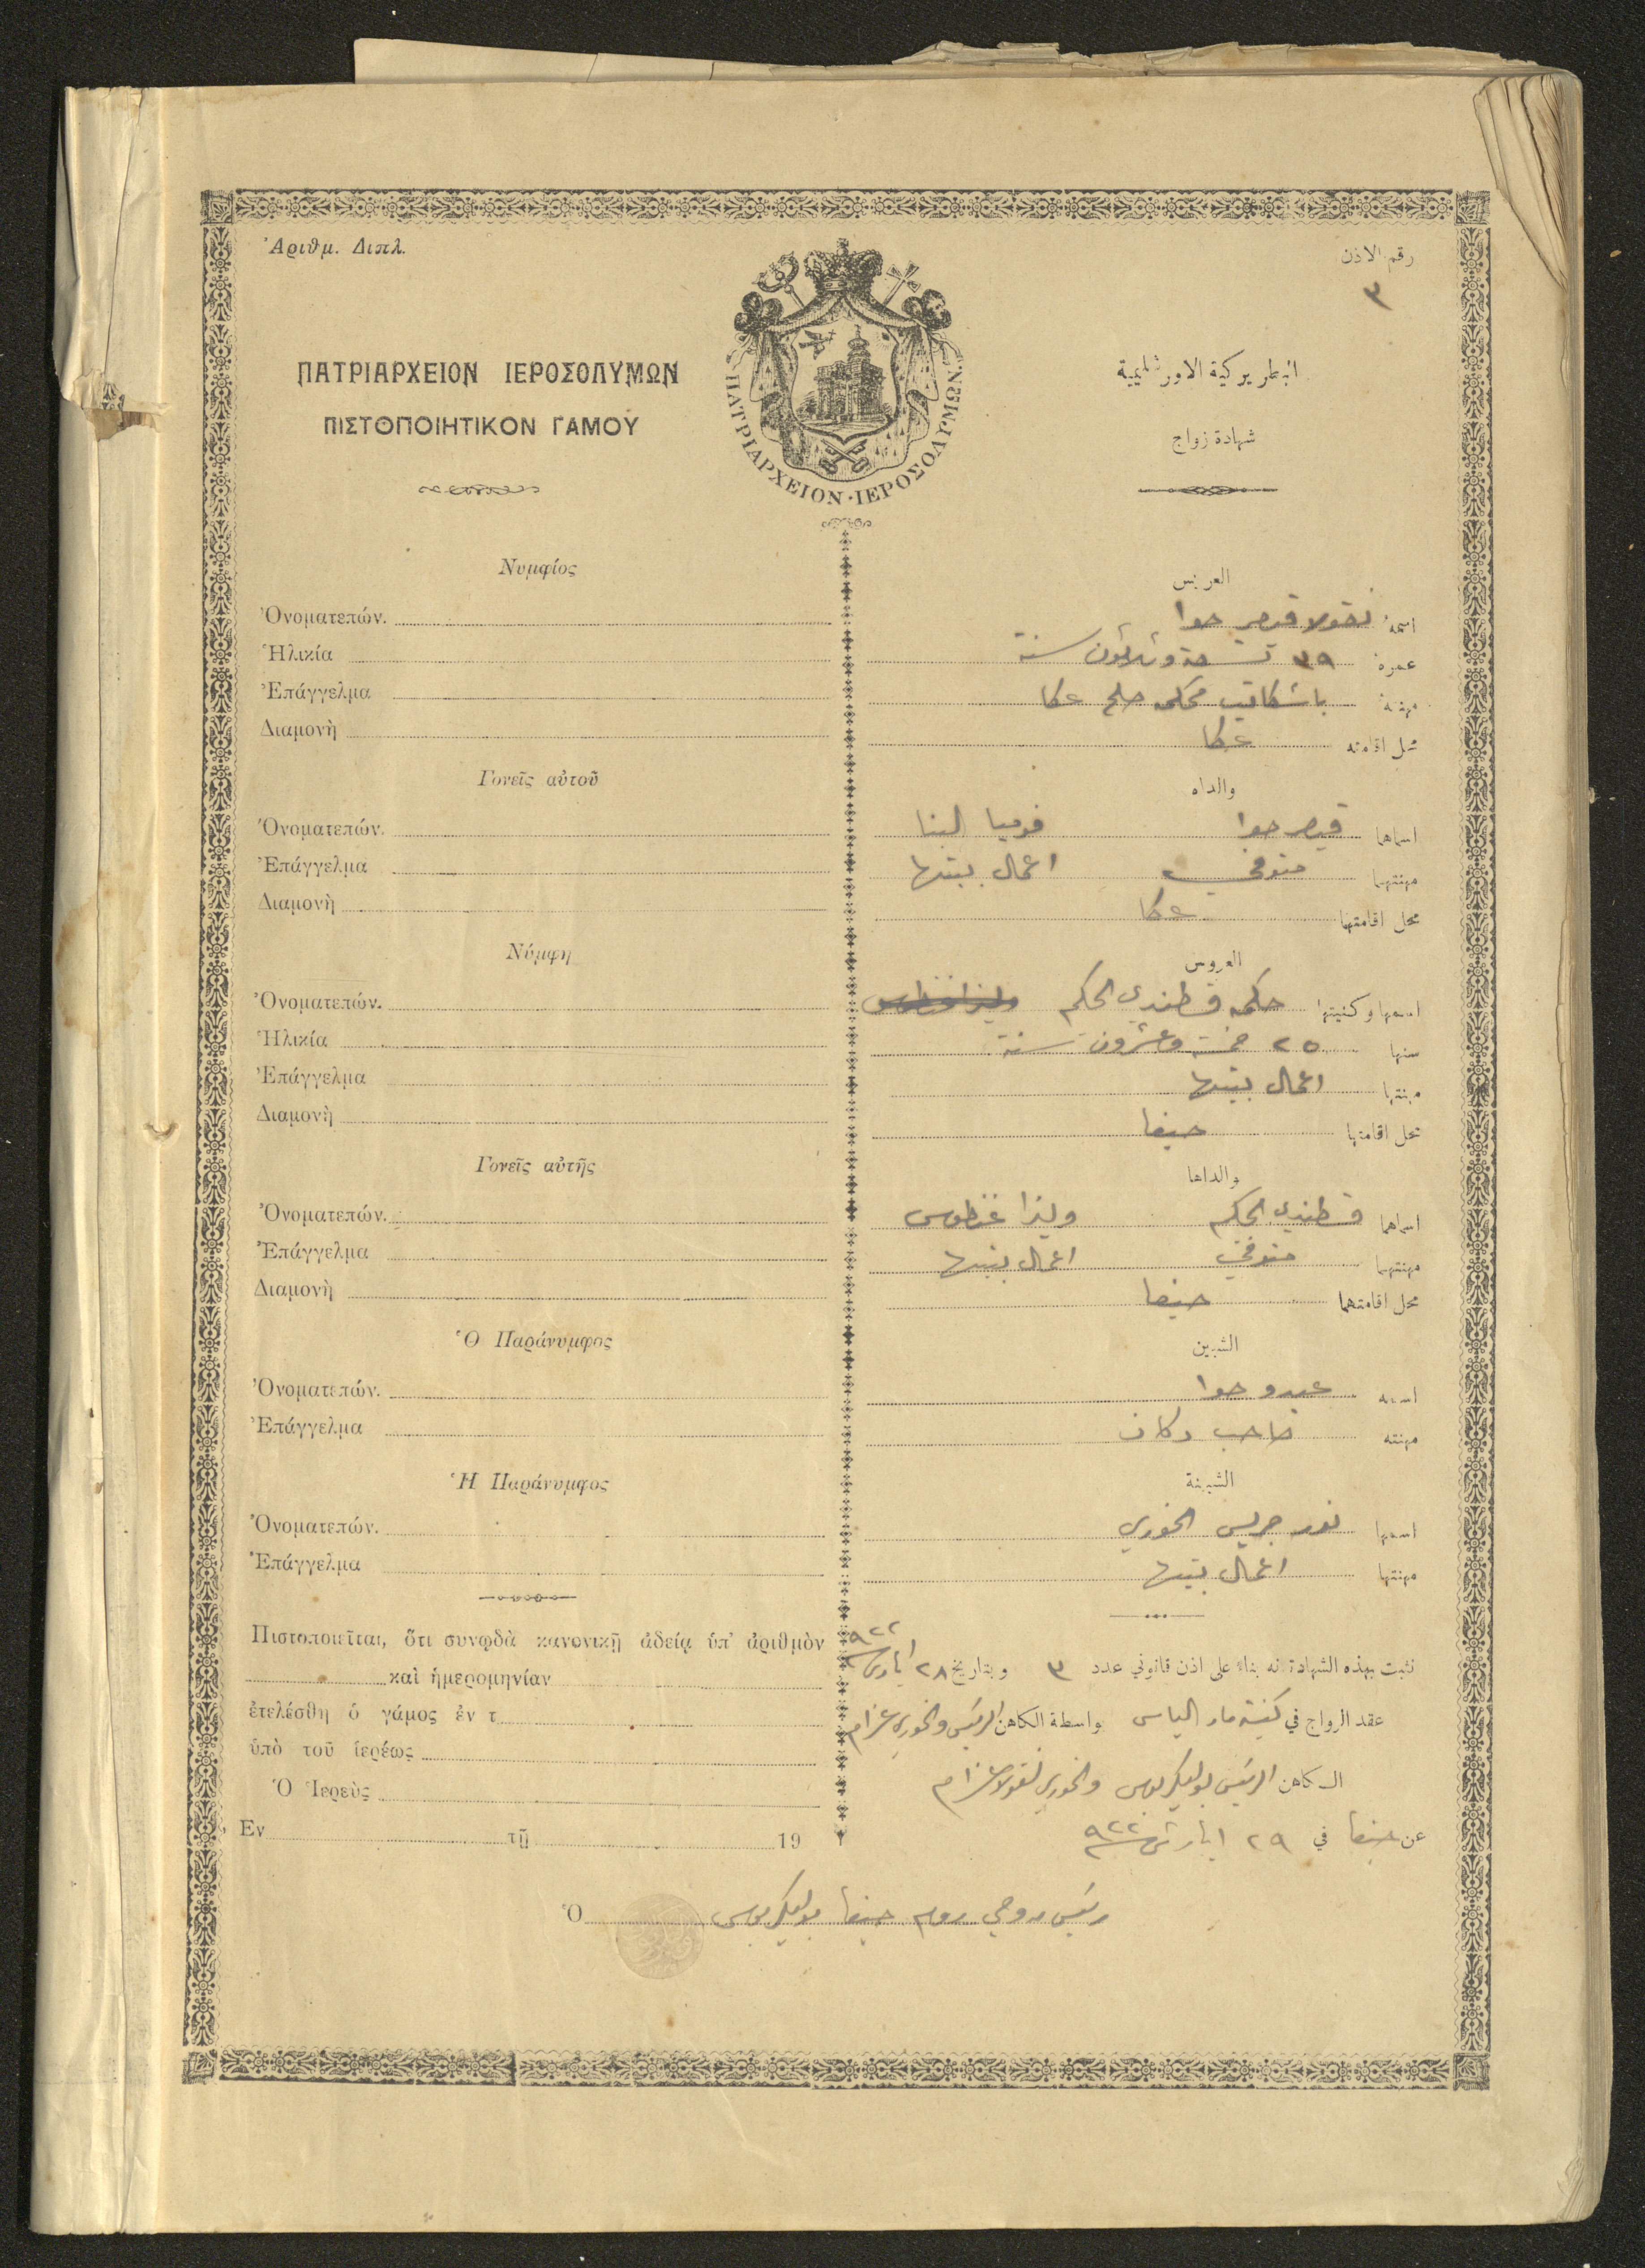 Ἀριθμ. Διπλ.
رقم الاذن
٣
ΠΑΤΡΙΑΡΧΕΙΟΝ ΙΕΡΟΣΟΛΥΜΩΝ
ΠΙΣΤΟΠΟΙΗΤΙΚΟΝ ΓΑΜΟΥ
ΠΑΤΡΙΑΡΧΕΙΟΝ · ΙΕΡΟΣΟΛΥΜΩΝ.
البطريركية الاورشليمية
شهادة زواج
Νυμφίος
Ὀνοματεπών.
Ἡλικία
Ἐπάγγελμα
Διαμονὴ
Γονεῖς αὐτοῦ
Ὀνοματεπών.
Ἐπάγγελμα
Διαμονὴ
Νύμφη
Ὀνοματεπών.
Ἡλικία
Ἐπάγγελμα
Διαμονὴ
Γονεῖς αὐτῆς
Ὀνοματεπών.
Ἐπάγγελμα
Διαμονὴ
Ὁ Παράνυμφος
Ὀνοματεπών.
Ἐπάγγελμα
Ἡ Παράνυμφος
Ὀνοματεπών.
Ἐπάγγελμα
Πιστοποιεῖται, ὅτι συνῳδὰ κανονικῇ ἀδείᾳ ὑπ' ἀριθμὸν
καὶ ἡμερομηνίαν
ἐτελέσθη ὁ γάμος ἐν τ
ὑπὸ τοῦ ἱερέως
Ὁ Ἱερεὺς
Ἐν τῇ 19
العريس
اسمه نقولا قيصر حوا
عمره ٣٩ تسعة وثلاثون سنة
مهنته باشكاتب محكمة صلح عكا
محل اقامته عكا
والداه
اسماهما قيصر حوا البنا
مهنتهما متوفي اعمال بيتها
محل اقامتهما عكا
العروس
اسمها وكنيتها حكمه قسطندي الحكيم
سنها ٢٥ خمسة وعشرون سنة
مهنتها اعمال بيتها
محل اقامتها حيفا
والداها
اسماهما قسطندي الحكيم وليزا غنطوس
مهنتهما متوفي اعمال بيتها
محل اقامتهما حيفا
الشبين
اسمه عبدو حوا
مهنته صاحب دكان
الشبينة
اسمها نور جريس الخوري
مهنتها اعمال بيتها
نثبت بهذه الشهادة انه بناء على اذن قانوني عدد ٣ وبتاريخ ٢٨ ايار سنة ٩٢٢
عقد الزواج في كنيسة مار الياس بواسطة الكاهن الرئيس والخوري عزام
الكاهن الرئيس بوليكربوس والخوري نقولا عزام
عن حيفا في ٢٩ ايار سنة ٩٢٢
Ὁ رئيس روحي روم حيفا بوليكربوس